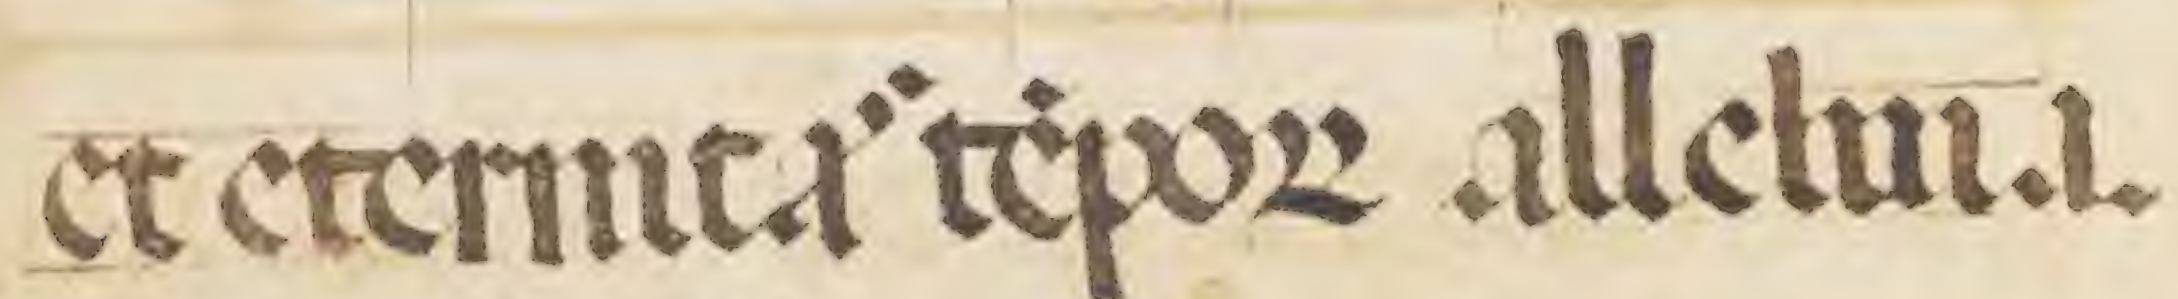 et eternita᷒ te᷒poꝝ alleluia